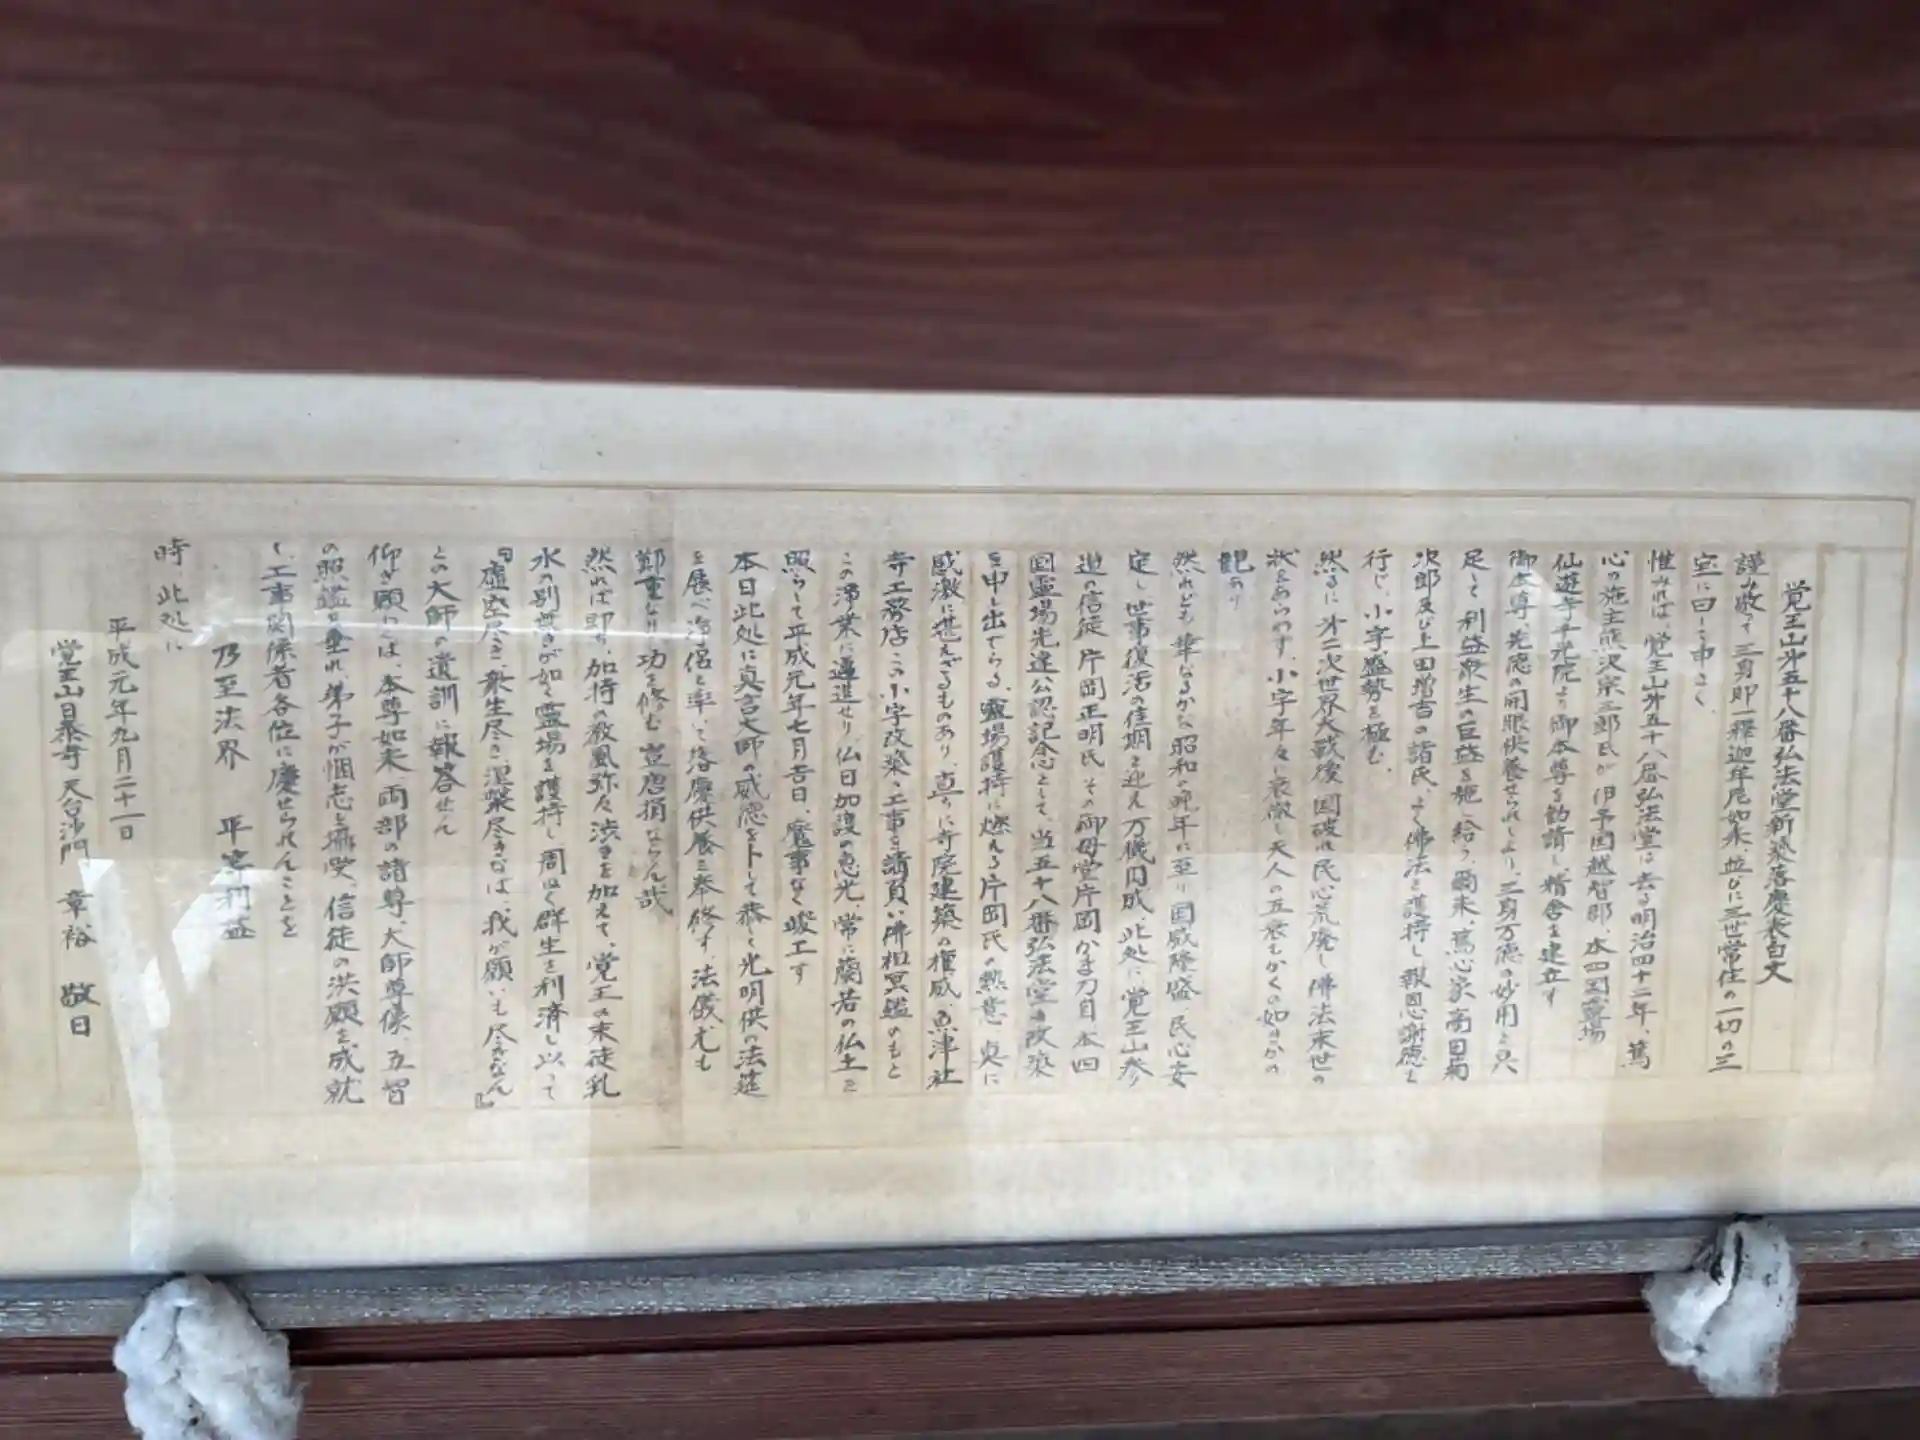 覚王山第五十八番弘法堂新築落慶表白文
謹み敬って三身即一釈迦牟尼如来、並びに三世常住の一切の三
宝に曰して申さく、
惟みれば、覚王山第五十八番弘法堂は去る明治四十二年、篤
心の施主熊沢宗三郎氏が伊予国越智郡、本四国霊場
仙遊寺千光院より御本尊を勧請し精舎を建立す
御本尊、先徳の開眼供養せられしより、三身万徳の妙用を具
足して利益衆生の巨益を施し給う、爾来、篤心家高田菊
次郎及び上田増吉の諸氏、よく佛法を護持し報恩謝徳を
行じ、小宇盛勢を極む、
然るに第二次世界大戦後、国破れ民心荒廃し佛法末世の
状をあらわす、小宇年々に衰微し天人の五衰もかくの如きかの
観あり
然れども華なるかな昭和の晩年に至り国威隆盛、民心安
定し世事復活の佳期を迎え万機円成、此処に覚王山参り
道の信徒片岡正明氏、その御母堂片岡かま刀自本四
国霊場先達公認記念として、当五十八番弘法堂の改築
を申し出でらる、霊場護持に燃える片岡氏の熱意、真に
感激に堪えざるものあり、直ちに寺院建築の権威、魚津社
寺工務店、この小宇改築の工事を請負い佛祖冥鑑のもと
この浄業に邁進せり、仏日加護の恵光、常に蘭若の仏土を
照らして平成元年七月吉日、魔事なく竣工す
本日此処に真言大師の威徳を卜して恭しく光明供の法莚
を展べ浄侶を率いて落慶供養を奉修す、法儀、尤も
鄭重なり功を修む、豈唐捐ならん哉
然れば即ち、加持の教風弥々渋を加えて、覚王の末徒乳
水の別無きが如く霊場を護持し、周ねく群生を利済し以って
『虚空尽き、衆生尽き、涅槃尽きなば、我が願いも尽きなん』
との大師の遺訓に報答せん
仰ぎ願わくは、本尊如来、両部の諸尊、大師尊儀、五智
の照鑑を垂れ、弟子が悃志を摂受、信徒の洪願を成就
し、工事関係者各位に慶せられんことを
乃至法界　平等利益
時、此処に
平成元年九月二十一日
覚王山日泰寺　天台沙門　章裕　敬白